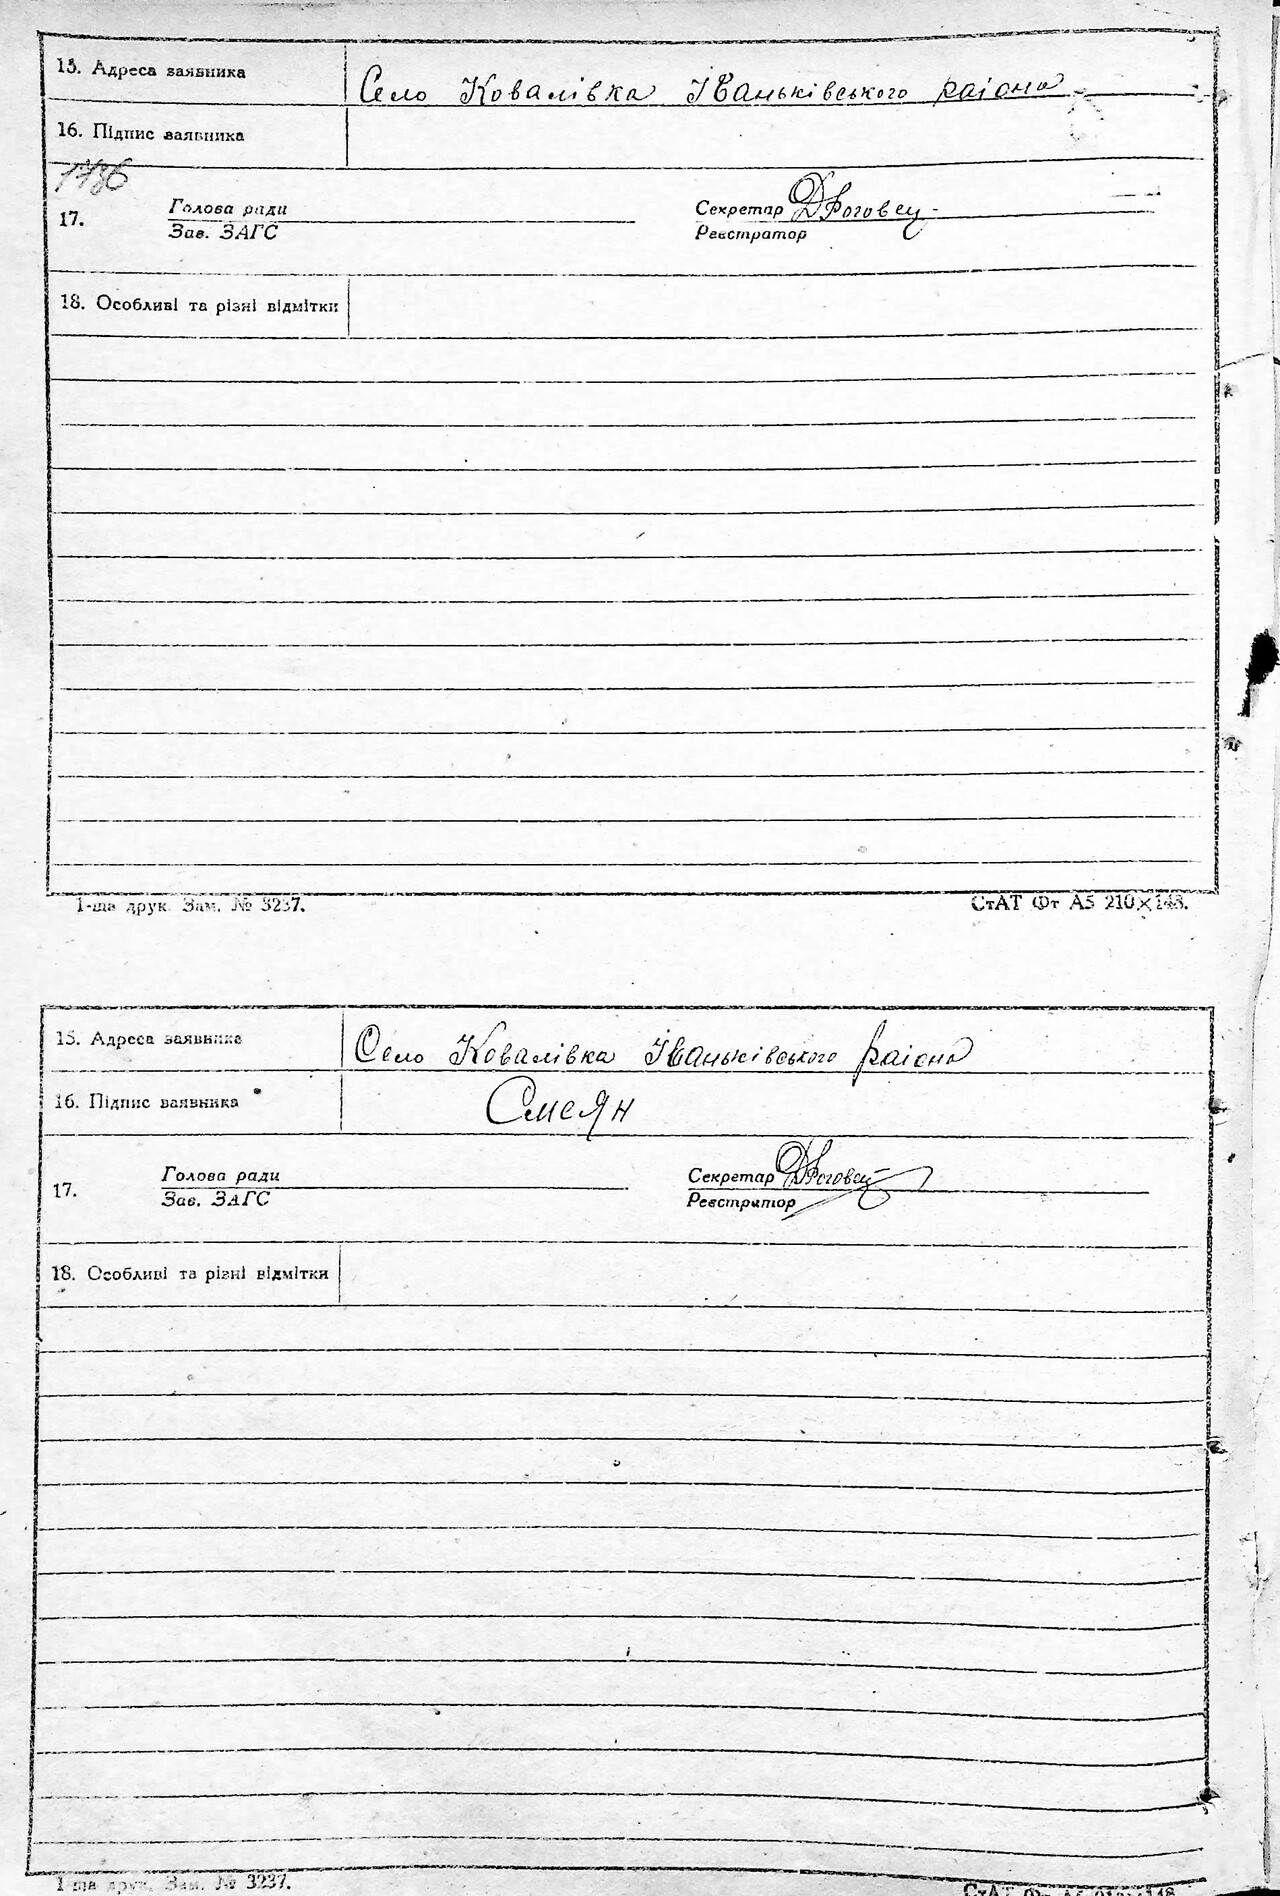 15. Адреса заявника Село Ковалівка Іваньківського раіона
16. Підпис заявника
17. Голова ради Секретар ДРоговец
Зав. ЗАГС Реєстратор
18. Особливі та різні відмітки
1-ша друк. Зам. № 3237. СтАТ Фт А5 210×148.
15. Адреса заявника Село Ковалівка Іваньківського раіона
16. Підпис заявника Смеян
17. Голова ради Секретар ДРоговец
Зав. ЗАГС Реєстратор
18. Особливі та різні відмітки
1-ша друк. Зам. № 3237. СтАТ Фт А5 210×148.